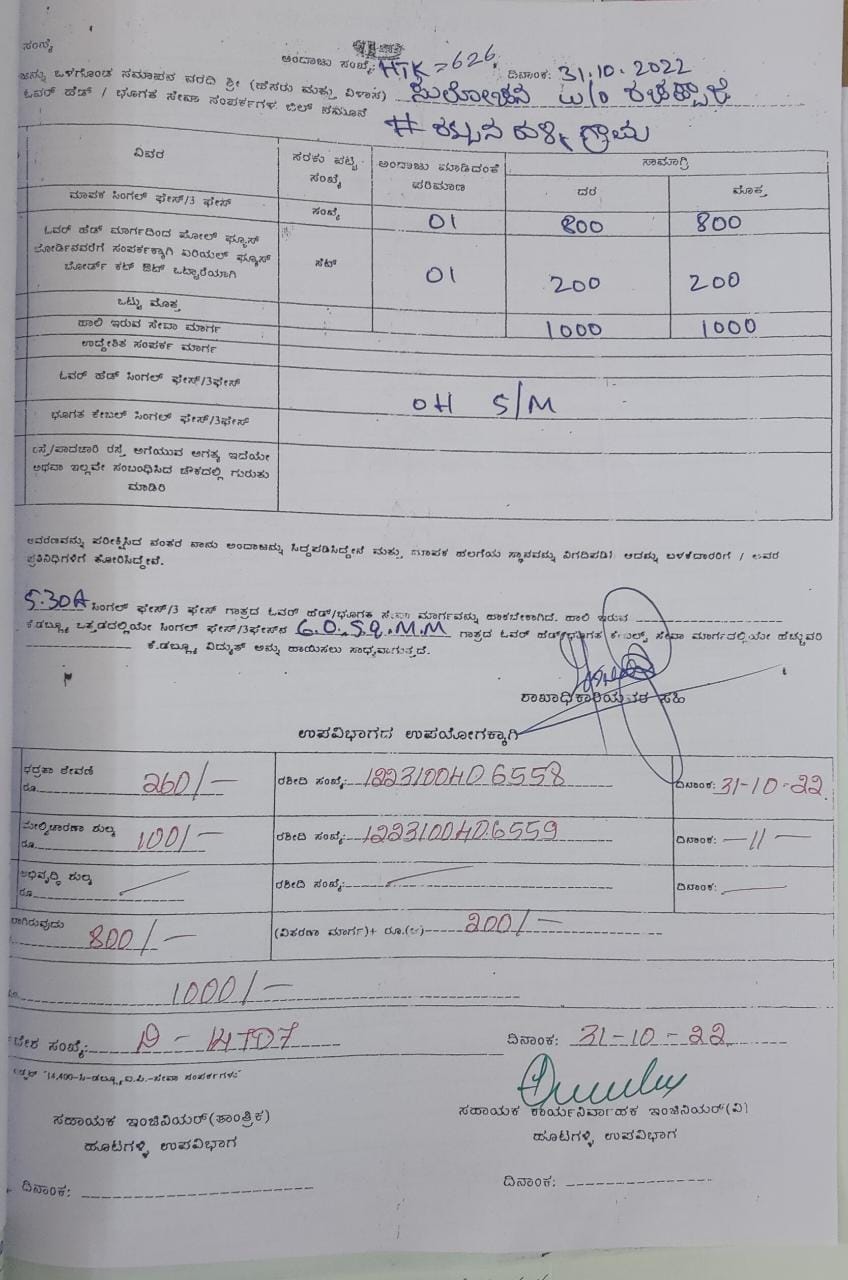 ಸಂಖ್ಯೆ
ಅಂದಾಜು ಸಂಖ್ಯೆ: HTK = 626, ದಿನಾಂಕ: 31.10.2022
ಒಳಗೊಂಡ ಸಮಾಪನ ವರದಿ ಶ್ರೀ (ಹೆಸರು ಮತ್ತು ವಿಳಾಸ) ಸುಲೋಚನ W/o
ಓವರ್ ಹೆಡ್ / ಭೂಗತ ಸೇವಾ ಸಂಪರ್ಕಗಳ ಬಿಲ್ ನಮೂನೆ
# ಗ್ರಾಮ
ವಿವರ ಸರಕು ಪಟ್ಟಿ ಸಂಖ್ಯೆ ಅಂದಾಜು ಮಾಡಿದಂತೆ ಪರಿಮಾಣ ಸಾಮಾಗ್ರಿ
ದರ ಮೊತ್ತ
ಮಾಪಕ ಸಿಂಗಲ್ ಫೇಸ್/3 ಫೇಸ್ ಸಂಖ್ಯೆ 01 800 800
ಓವರ್ ಹೆಡ್ ಮಾರ್ಗದಿಂದ ಪೋಲ್ ಫ್ಯೂಸ್
ಬೋರ್ಡಿನವರೆಗೆ ಸಂಪರ್ಕಕ್ಕಾಗಿ ಏರಿಯಲ್ ಫ್ಯೂಸ್ ಸೆಟ್ 01 200 200
ಬೋರ್ಡ್ ಕಟ್ ಔಟ್ ಒಟ್ಟಾರೆಯಾಗಿ
ಒಟ್ಟು ಮೊತ್ತ
1000 1000
ಹಾಲಿ ಇರುವ ಸೇವಾ ಮಾರ್ಗ
ಉದ್ದೇಶಿತ ಸಂಪರ್ಕ ಮಾರ್ಗ
ಓವರ್ ಹೆಡ್ ಸಿಂಗಲ್ ಫೇಸ್/3ಫೇಸ್
OH S/M
ಭೂಗತ ಕೇಬಲ್ ಸಿಂಗಲ್ ಫೇಸ್/3ಫೇಸ್
ರಸ್ತೆ/ಪಾದಚಾರಿ ರಸ್ತೆ ಅಗೆಯುವ ಅಗತ್ಯ ಇದೆಯೇ
ಅಥವಾ ಇಲ್ಲವೇ ಸಂಬಂಧಿಸಿದ ಚೌಕದಲ್ಲಿ ಗುರುತು
ಮಾಡಿರಿ
ಆವರಣವನ್ನು ಪರೀಕ್ಷಿಸಿದ ನಂತರ ನಾನು ಅಂದಾಜನ್ನು ಸಿದ್ಧಪಡಿಸಿದ್ದೇನೆ ಮತ್ತು ಮಾಪಕ ಹಲಗೆಯ ಸ್ಥಾನವನ್ನು ನಿಗದಿಪಡಿಸಿ ಅದನ್ನು ಬಳಕೆದಾರರಿಗೆ / ಅವರ
ಪ್ರತಿನಿಧಿಗಳಿಗೆ ತೋರಿಸಿದ್ದೇವೆ.
5.30A ಸಿಂಗಲ್ ಫೇಸ್/3 ಫೇಸ್ ಗಾತ್ರದ ಓವರ್ ಹೆಡ್/ಭೂಗತ ಸೇವಾ ಮಾರ್ಗವನ್ನು ಹಾಕಬೇಕಾಗಿದೆ. ಹಾಲಿ ಇರುವ
ಕೆ.ಡಬ್ಲ್ಯೂ ಒತ್ತಡದಲ್ಲಿಯೇ ಸಿಂಗಲ್ ಫೇಸ್/3ಫೇಸ್‌ನ 6.0.Sq.M.M ಗಾತ್ರದ ಓವರ್ ಹೆಡ್/ಭೂಗತ ಕೇಬಲ್ಸ್ ಸೇವಾ ಮಾರ್ಗದಲ್ಲಿಯೇ ಹೆಚ್ಚುವರಿ
ಕೆ.ಡಬ್ಲ್ಯೂ ವಿದ್ಯುತ್ ಅನ್ನು ಹಾಯಿಸಲು ಸಾಧ್ಯವಾಗುತ್ತದೆ.
ಶಾಖಾಧಿಕಾರಿಯವರ ಸಹಿ
ಉಪವಿಭಾಗದ ಉಪಯೋಗಕ್ಕಾಗಿ
ಭದ್ರತಾ ಠೇವಣಿ
ರೂ. 260/- ರಶೀದಿ ಸಂಖ್ಯೆ: 1223100406558 ದಿನಾಂಕ: 31-10-22
ಮೇಲ್ವಿಚಾರಣಾ ಶುಲ್ಕ
ರೂ. 100/- ರಶೀದಿ ಸಂಖ್ಯೆ: 1223100406559 ದಿನಾಂಕ: -11-
ಅಭಿವೃದ್ಧಿ ಶುಲ್ಕ
ರೂ. ರಶೀದಿ ಸಂಖ್ಯೆ: ದಿನಾಂಕ:
800/- (ವಿತರಣಾ ಮಾರ್ಗ)+ ರೂ. 200/-
1000/-
ಸಂಖ್ಯೆ: ದಿನಾಂಕ: 31-10-22
ಸಹಾಯಕ ಇಂಜಿನಿಯರ್(ತಾಂತ್ರಿಕ) ಸಹಾಯಕ ಕಾರ್ಯನಿರ್ವಾಹಕ ಇಂಜಿನಿಯರ್(ವಿ)
ಹೂಟಗಳ್ಳಿ ಉಪವಿಭಾಗ ಹೂಟಗಳ್ಳಿ ಉಪವಿಭಾಗ
ದಿನಾಂಕ: ದಿನಾಂಕ: